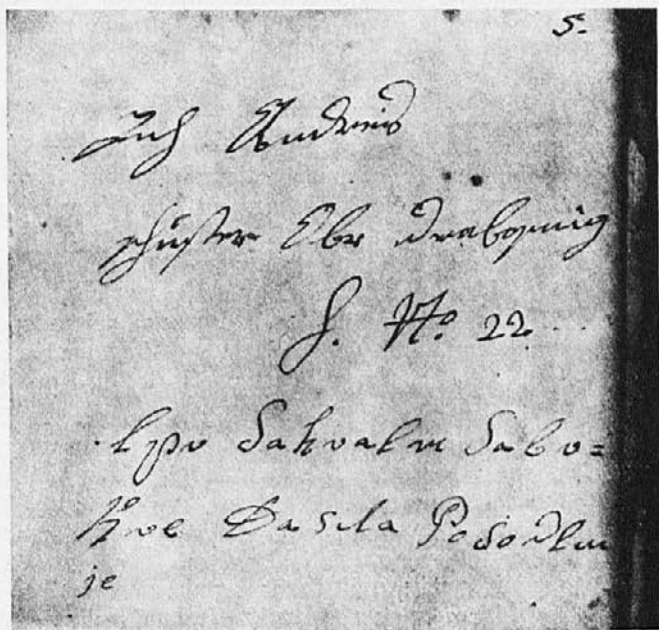 5.
Ich Andreis
schuster Obr drabosnig
H. No. 22
lpo Sahvalm Sabo=
kve Da sila Posodlm
je